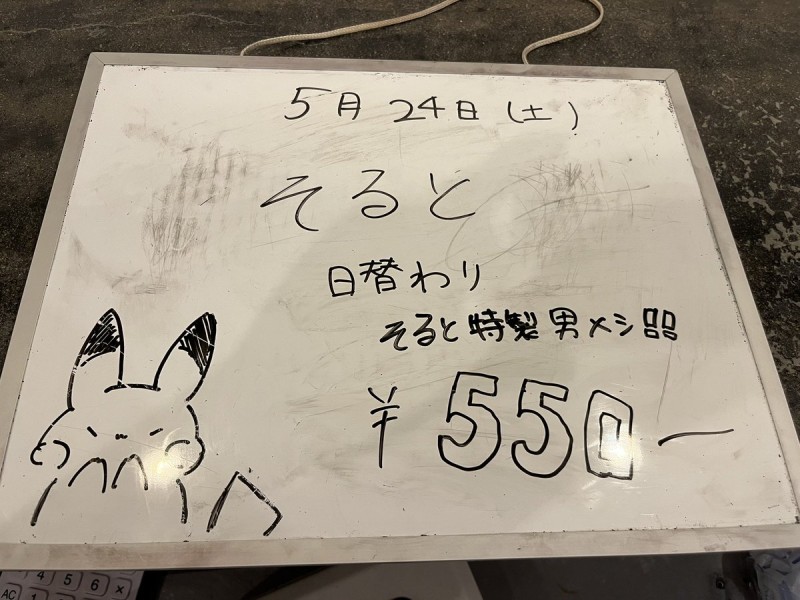 5月24日(土)
そると
日替わり
そると特製男メシ
¥550ー
4 5 6 ×
AC